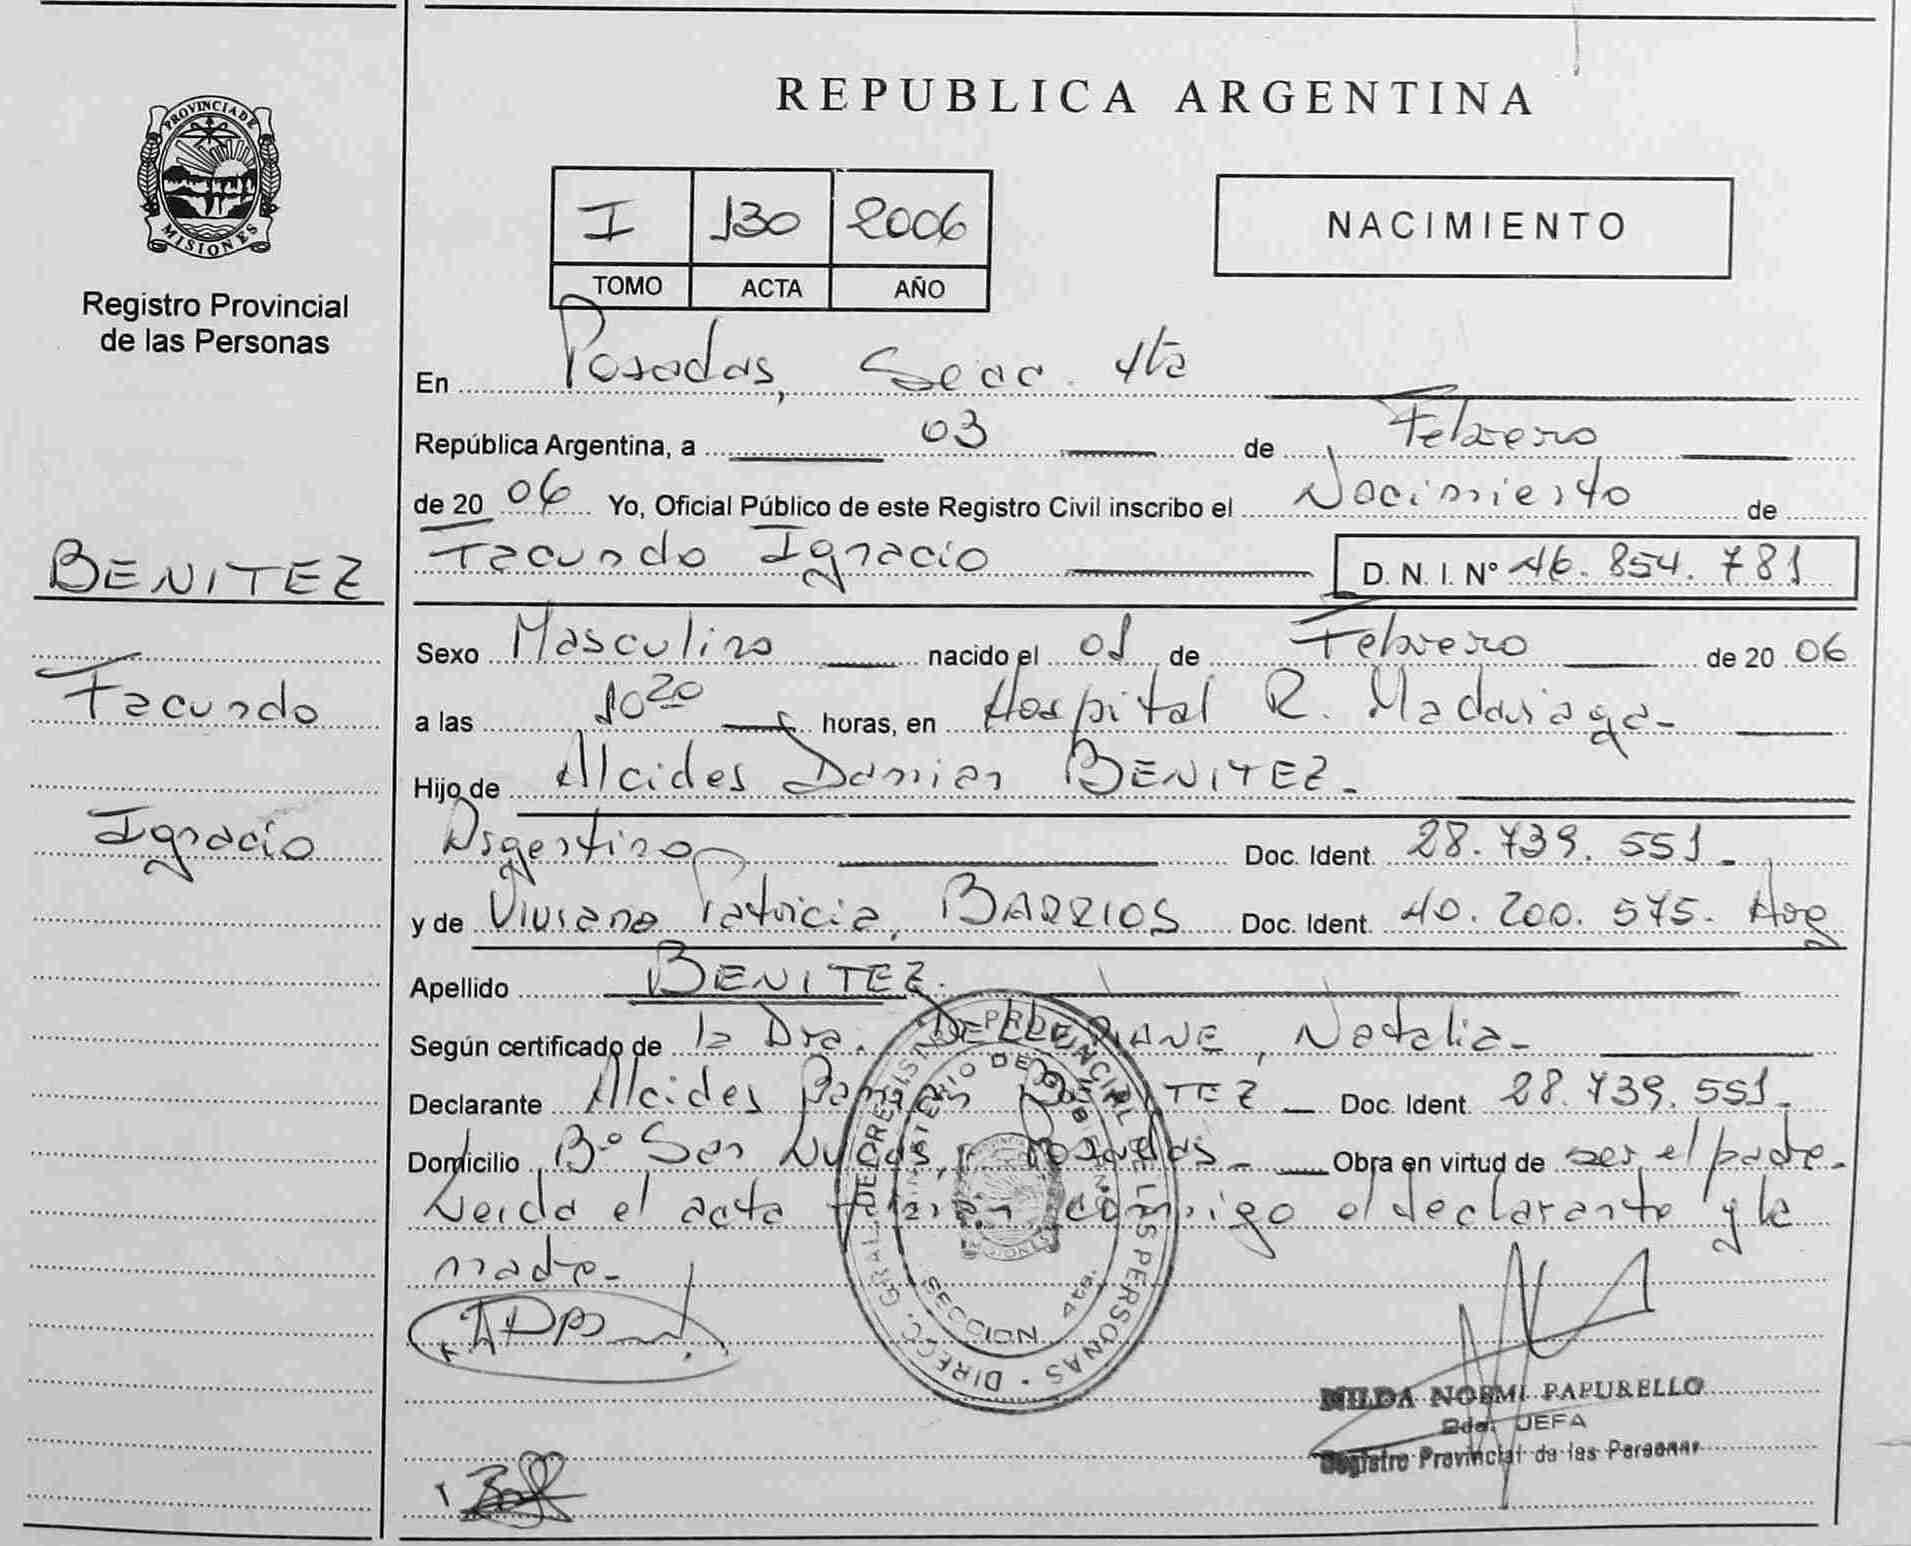 REPUBLICA ARGENTINA
PROVINCIA DE
MISIONES
Registro Provincial
de las Personas
I 130 2006
TOMO ACTA AÑO
NACIMIENTO
En Posadas, Secc. 4ta
República Argentina, a 03 de Febrero
de 20 06 Yo, Oficial Público de este Registro Civil inscribo el Nacimiento de
Facundo Ignacio D. N. I. Nº 46.854.781
BENITEZ
Facundo
Ignacio
Sexo Masculino nacido el 01 de Febrero de 20 06
a las 10 20 horas, en Hospital R. Madariaga-
Hijo de Alcides Damian BENITEZ-
Argentino Doc. Ident. 28.739.551-
y de Viviana Patricia, BARRIOS Doc. Ident. 40.200.575. Arg
Apellido BENITEZ.
Según certificado de la Dra. Natalia-
Declarante Alcides Damian BENITEZ - Doc. Ident. 28.739.551-
Domicilio Bº San Lucas, Posadas- Obra en virtud de ser el padre-
Leida el acta firman conmigo el declarante y la
madre-
DIREC. GRAL. DE REGISTRO PROVINCIAL DE LAS PERSONAS
MINISTERIO DE GOBIERNO
SECCION 4ta
NILDA NOEMI PAPURELLO
2da. JEFA
Registro Provincial de las Personas